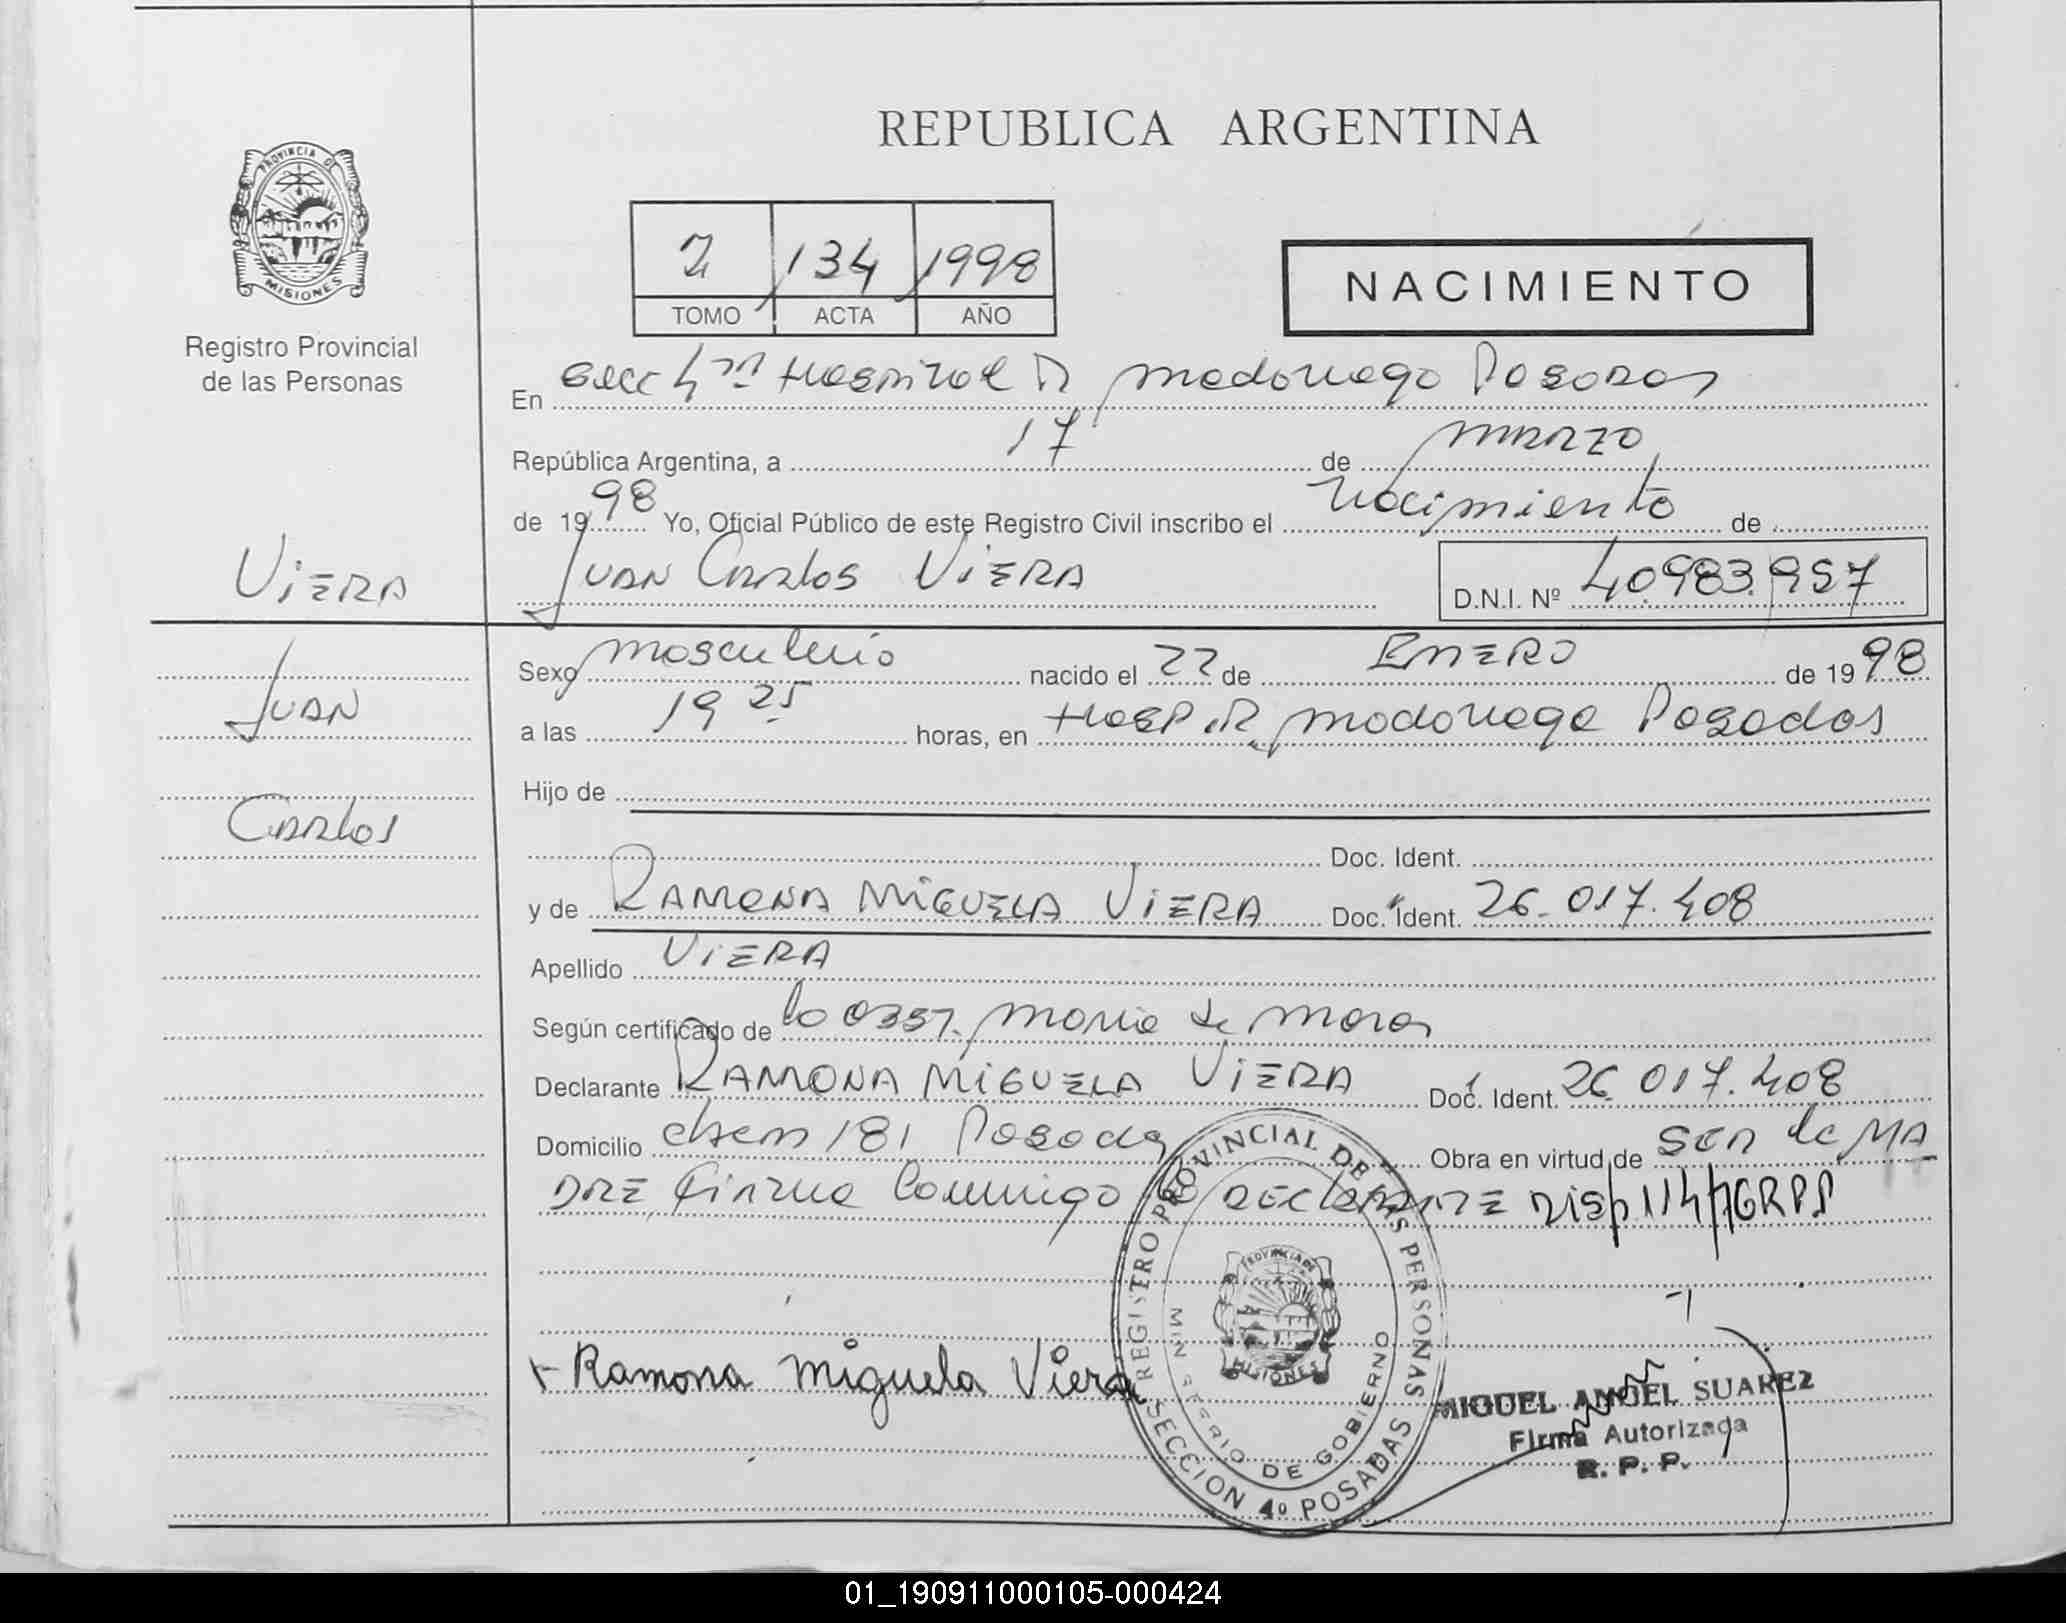 REPUBLICA ARGENTINA
PROVINCIA DE
MISIONES
Registro Provincial
de las Personas
2 134 1998
TOMO ACTA AÑO
NACIMIENTO
En Secc 4ta Hospital R Madariaga Posadas
República Argentina, a 17 de marzo
de 1998 Yo, Oficial Público de este Registro Civil inscribo el Nacimiento de
Juan Carlos Viera D.N.I. Nº 40.983.957
Viera
Juan
Carlos
Sexo masculino nacido el 22 de Enero de 1998
a las 19 25 horas, en Hosp. R. Madariaga Posadas
Hijo de
Doc. Ident.
y de Ramona Miguela Viera Doc. Ident. 26.017.408
Apellido Viera
Según certificado de la Obst. Maria de
Declarante Ramona Miguela Viera Doc. Ident. 26.017.408
Domicilio 181 Posadas Obra en virtud de ser la MA
DRE Firma Conmigo la DECLARANTE Disp 114/
+ Ramona Miguela Viera
REGISTRO PROVINCIAL DE LAS PERSONAS
MINISTERIO DE GOBIERNO
PROVINCIA DE
MISIONES
SECCION 4º POSADAS
MIGUEL ANGEL SUAREZ
Firma Autorizada
R. P. P.
01_190911000105-000424